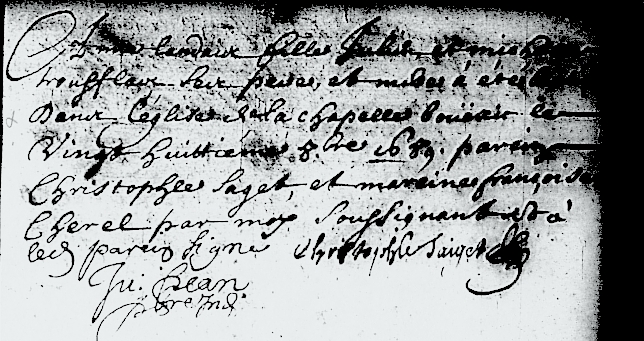 landaux fille Julien et michelle
ses pere, et mere à été
Dans L'église de la chapelle boüexic le
Vingt huittieme 8.bre 1689. parein
Christophle Saget, et mareine françoise
Cherel par moy soussignant et à
led parein signe Christophle Saiget
Ju: Jean
pbre